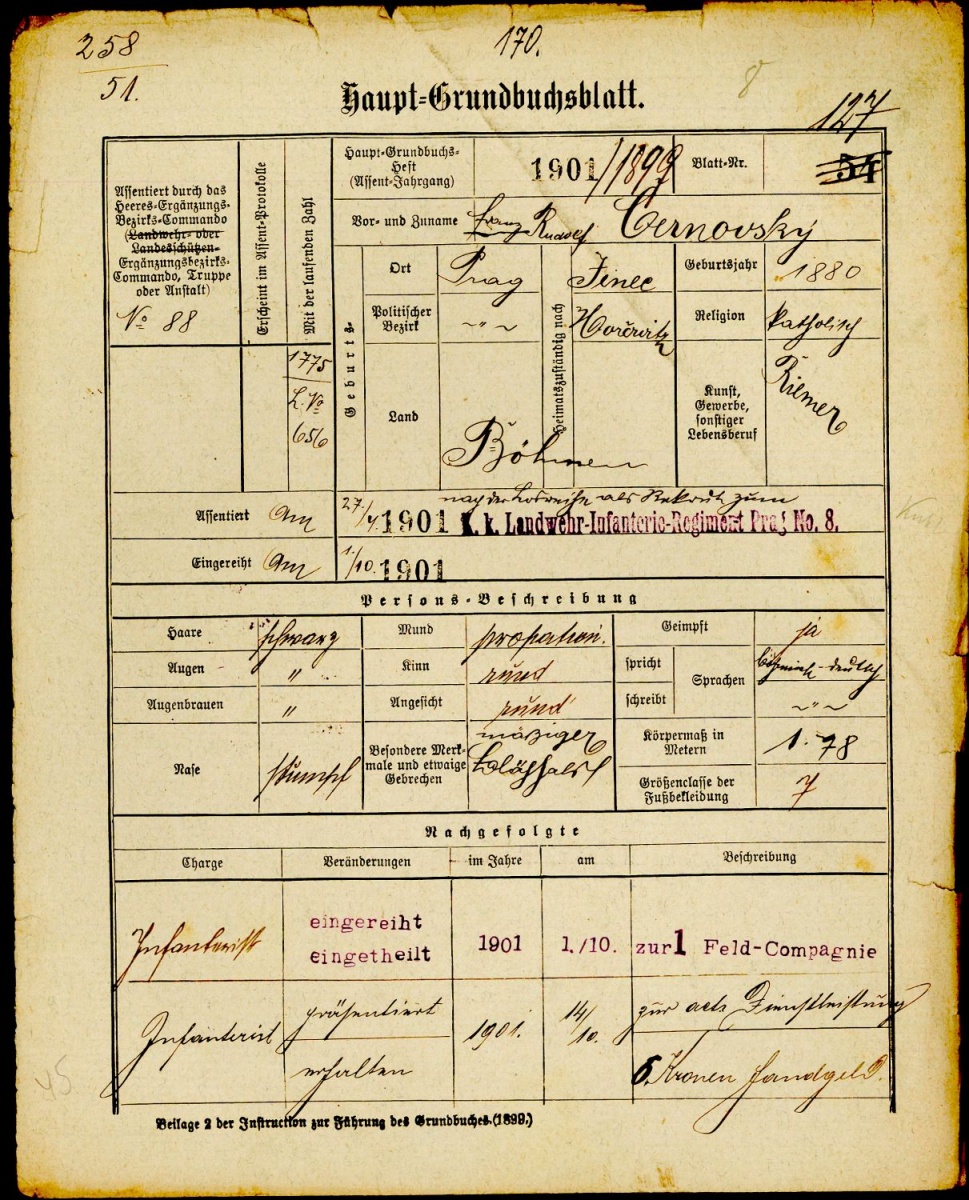 258
51.
170.
8
Haupt-Grundbuchsblatt.
127
Assentiert durch das
Heeres-Ergänzungs-
Bezirks-Commando
(Landwehr- oder
Landesschützen-
Ergänzungsbezirks-
Commando, Truppe
oder Anstalt)
No 88
Erscheint im Assent-Protokolle
Mit der laufenden Zahl
1775
L. No
656
Haupt-Grundbuchs-
Heft
(Assent-Jahrgang)
1901/1899
Blatt-Nr.
54
Vor- und Zuname
Franz Rudolf Černovsky
Geburts-
Ort
Prag
Heimatszuständig nach
Jinec
Geburtsjahr
1880
Politischer
Bezirk
~ " ~
Hořowitz
Religion
katholisch
Land
Böhmen
Kunst,
Gewerbe,
sonstiger
Lebensberuf
Riemer
Assentiert Am 27./4. 1901 nach der Losreihe als Rekrut zum
K. k. Landwehr-Infanterie-Regiment Prag No. 8.
Eingereiht Am 1/10. 1901
Persons-Beschreibung
Haare schwarz Mund proportion. Geimpft ja
Augen " Kinn rund spricht Sprachen böhmisch-deutsch
Augenbrauen " Angesicht rund schreibt ~ " ~
Nase stumpf
Besondere Merk-
male und etwaige
Gebrechen
mässiger
Blähhals
Körpermaß in
Metern
1.78
Größenclasse der
Fußbekleidung
7
Nachgefolgte
Charge Veränderungen im Jahre am Beschreibung
Infanterist eingereiht
eingetheilt 1901 1./10. zur 1 Feld-Compagnie
Infanterist präsentiert 1901. 14/10. zur act. Dienstleistung
erhalten 6 Kronen Handgeld.
45
Beilage 2 der Instruction zur Führung des Grundbuches. (1899.)